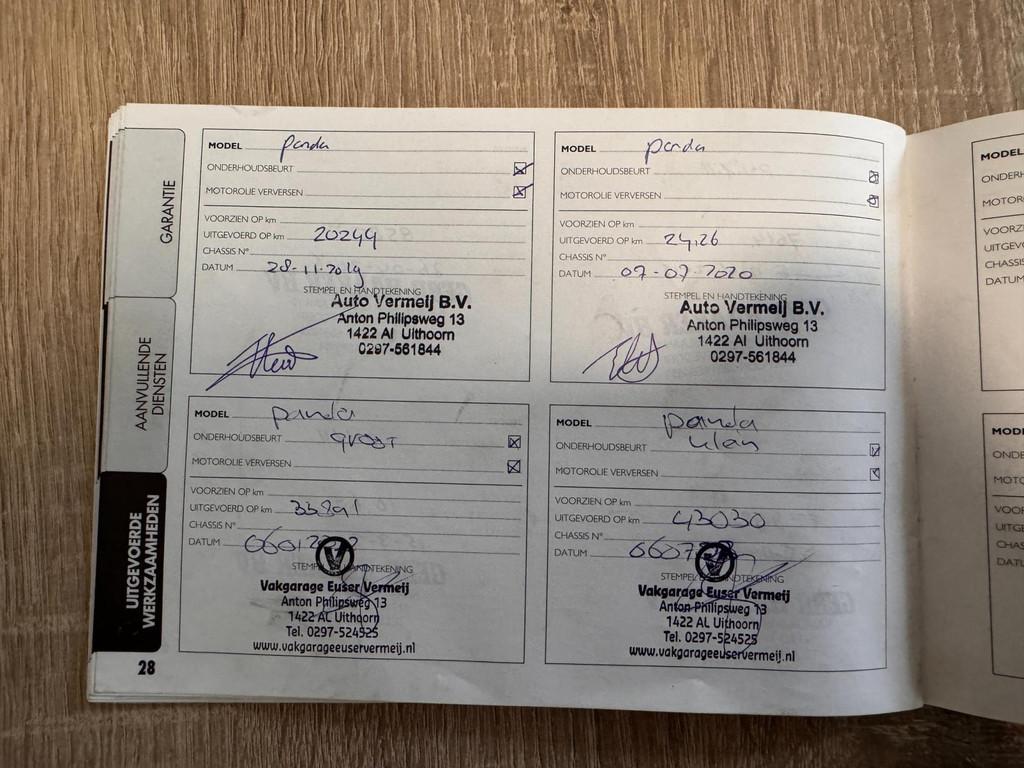 GARANTIE
AANVULLENDE
DIENSTEN
UITGEVOERDE
WERKZAAMHEDEN
28
MODEL panda
ONDERHOUDSBEURT
MOTOROLIE VERVERSEN
VOORZIEN OP km
UITGEVOERD OP km 20244
CHASSIS N°
DATUM 28-11-2019
STEMPEL EN HANDTEKENING
Auto Vermeij B.V.
Anton Philipsweg 13
1422 Al Uithoorn
0297-561844
MODEL panda
ONDERHOUDSBEURT
MOTOROLIE VERVERSEN
VOORZIEN OP km
UITGEVOERD OP km 24,26
CHASSIS N°
DATUM 07-07-2020
STEMPEL EN HANDTEKENING
Auto Vermeij B.V.
Anton Philipsweg 13
1422 Al Uithoorn
0297-561844
MODEL panda
ONDERHOUDSBEURT groot
MOTOROLIE VERVERSEN
VOORZIEN OP km
UITGEVOERD OP km 33891
CHASSIS N°
DATUM
STEMPEL EN HANDTEKENING
Vakgarage Euser Vermeij
Anton Philipsweg 13
1422 AL Uithoorn
Tel. 0297-524525
www.vakgarageeuservermeij.nl
MODEL panda
ONDERHOUDSBEURT klein
MOTOROLIE VERVERSEN
VOORZIEN OP km
UITGEVOERD OP km 43030
CHASSIS N°
DATUM
STEMPEL EN HANDTEKENING
Vakgarage Euser Vermeij
Anton Philipsweg 13
1422 AL Uithoorn
Tel. 0297-524525
www.vakgarageeuservermeij.nl
MODEL